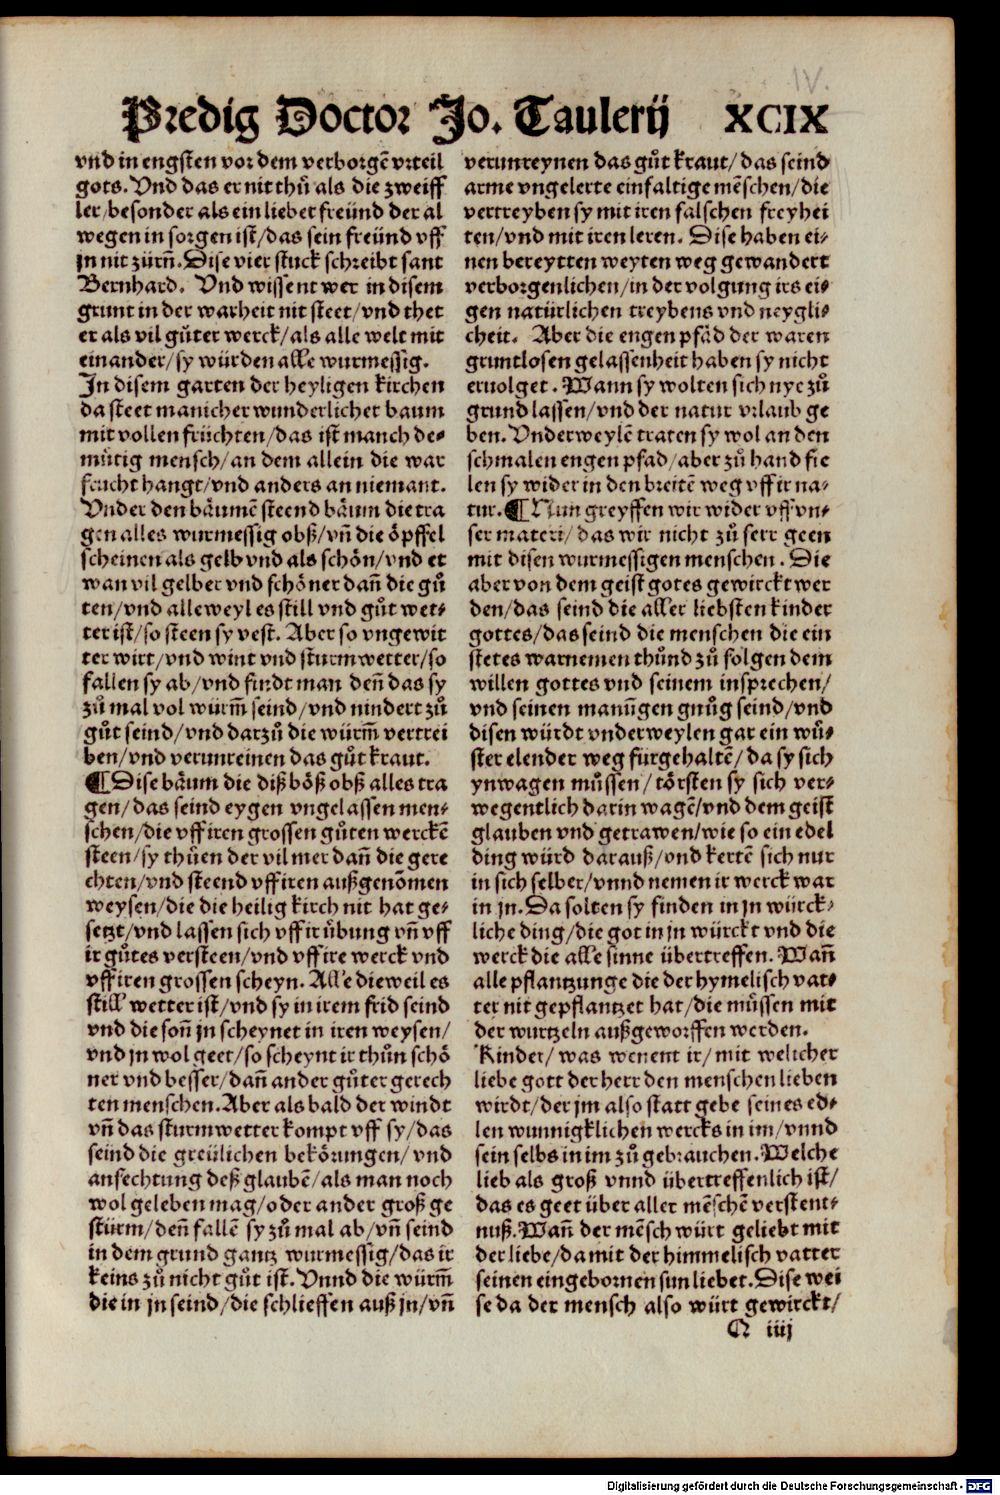 Predig Doctor Jo. Taulerij XCIX
vnd in engsten vor dem verborgē vrteil
gots. Vnd das er nit thů als die zweiff
ler/besonder als ein lieber freünd der al
wegen in sorgen ist/das sein freünd vff
jn nit zürn̄. Dise vier stuck schreibt sant
Bernhard. Vnd wissent wer in disem
grunt in der warheit nit steet/vnd thet
er als vil gůter werck/als alle welt mit
einander/sy würden alle wurmessig.
In disem garten der heyligen kirchen
da steet manicher wunderlicher baum
mit vollen früchten/das ist manch de⸗
můtig mensch/an dem allein die war
frucht hangt/vnd anders an niemant.
Vnder den bäumē steend bäum die tra
gen alles wurmessig obß/vn̄ die öpffel
scheinen als gelb vnd als schön/vnd et
wan vil gelber vnd schöner dan̄ die gů
ten/vnd alleweyl es still vnd gůt wet⸗
ter ist/so steen sy vest. Aber so vngewit
ter wirt/vnd wint vnd sturmwetter/so
fallen sy ab/vnd findt man den̄ das sy
zů mal vol würm̄ seind/vnd nindert zů
gůt seind/vnd darzů die würm̄ vertrei
ben/vnd verunreinen das gůt kraut.
¶ Dise bäum die diß böß obß alles tra
gen/das seind eygen vngelassen men⸗
schen/die vff iren grossen gůten werckē
steen/sy thůen der vil mer dan̄ die gere
chten/vnd steend vff iren außgenōmen
weysen/die die heilig kirch nit hat ge⸗
setzt/vnd lassen sich vff ir übung vn̄ vff
ir gůtes versteen/vnd vff ire werck vnd
vff iren grossen scheyn. Alle dieweil es
still wetter ist/vnd sy in irem frid seind
vnd die son̄ jn scheynet in iren weysen/
vnd jn wol geet/so scheynt ir thůn schö
ner vnd besser/dan̄ ander gůter gerech
ten menschen. Aber als bald der windt
vn̄ das sturmwetter kompt vff sy/das
seind die greülichen bekörungen/vnd
anfechtung deß glaubē/als man noch
wol geleben mag/oder ander groß ge
stürm/den̄ fallē sy zů mal ab/vn̄ seind
in dem grund gantz wurmessig/das ir
keins zů nicht gůt ist. Vnnd die würm̄
die in jn seind/die schlieffen auß jn/vn̄
verunreynen das gůt kraut/das seind
arme vngelerte einfaltige mēschen/die
vertreyben sy mit iren falschen freyhei
ten/vnd mit iren leren. Dise haben ei⸗
nen bereytten weyten weg gewandert
verborgenlichen/in der volgung irs ei⸗
gen natürlichen treybens vnd neygli⸗
cheit. Aber die engen pfäd der waren
gruntlosen gelassenheit haben sy nicht
ervolget. Wann sy wolten sich nye zů
grund lassen/vnd der natur vrlaub ge
ben. Vnderweylē traten sy wol an den
schmalen engen pfad/aber zů hand fie
len sy wider in den breitē weg vff ir na⸗
tur. ¶ Nun greyffen wir wider vff vn⸗
ser materi/das wir nicht zů serr geen
mit disen wurmessigen menschen. Die
aber von dem geist gotes gewirckt wer
den/das seind die aller liebsten kinder
gottes/das seind die menschen die ein
stetes warnemen thůnd zů folgen dem
willen gottes vnd seinem insprechen/
vnd seinen manūgen gnůg seind/vnd
disen würdt vnderweylen gar ein wů⸗
ster elender weg fürgehaltē/da sy sich
ynwagen můssen/törsten sy sich ver⸗
wegentlich darin wagē/vnd dem geist
glauben vnd getrawen/wie so ein edel
ding würd darauß/vnd kertē sich nur
in sich selber/vnnd nemen ir werck war
in jn. Da solten sy finden in jn würck⸗
liche ding/die got in jn würckt vnd die
werck die alle sinne übertreffen. Wan̄
alle pflantzunge die der hymelisch vat⸗
ter nit gepflantzet hat/die müssen mit
der wurtzeln außgeworffen werden.
Kinder/was wenent ir/mit welicher
liebe gott der herr den menschen lieben
wirdt/der jm also statt gebe seines ed⸗
len wunnigklichen wercks in im/vnnd
sein selbs in im zů gebrauchen. Welche
lieb als groß vnnd übertreffenlich ist/
das es geet über aller mēschē verstent⸗
nuß. Wan̄ der mēsch würt geliebt mit
der liebe/da mit der himmelisch vatter
seinen eingebornen sun liebet. Dise wei
se da der mensch also würt gewirckt/
iiij
Digitalisierung gefördert durch die Deutsche Forschungsgemeinschaft - DFG